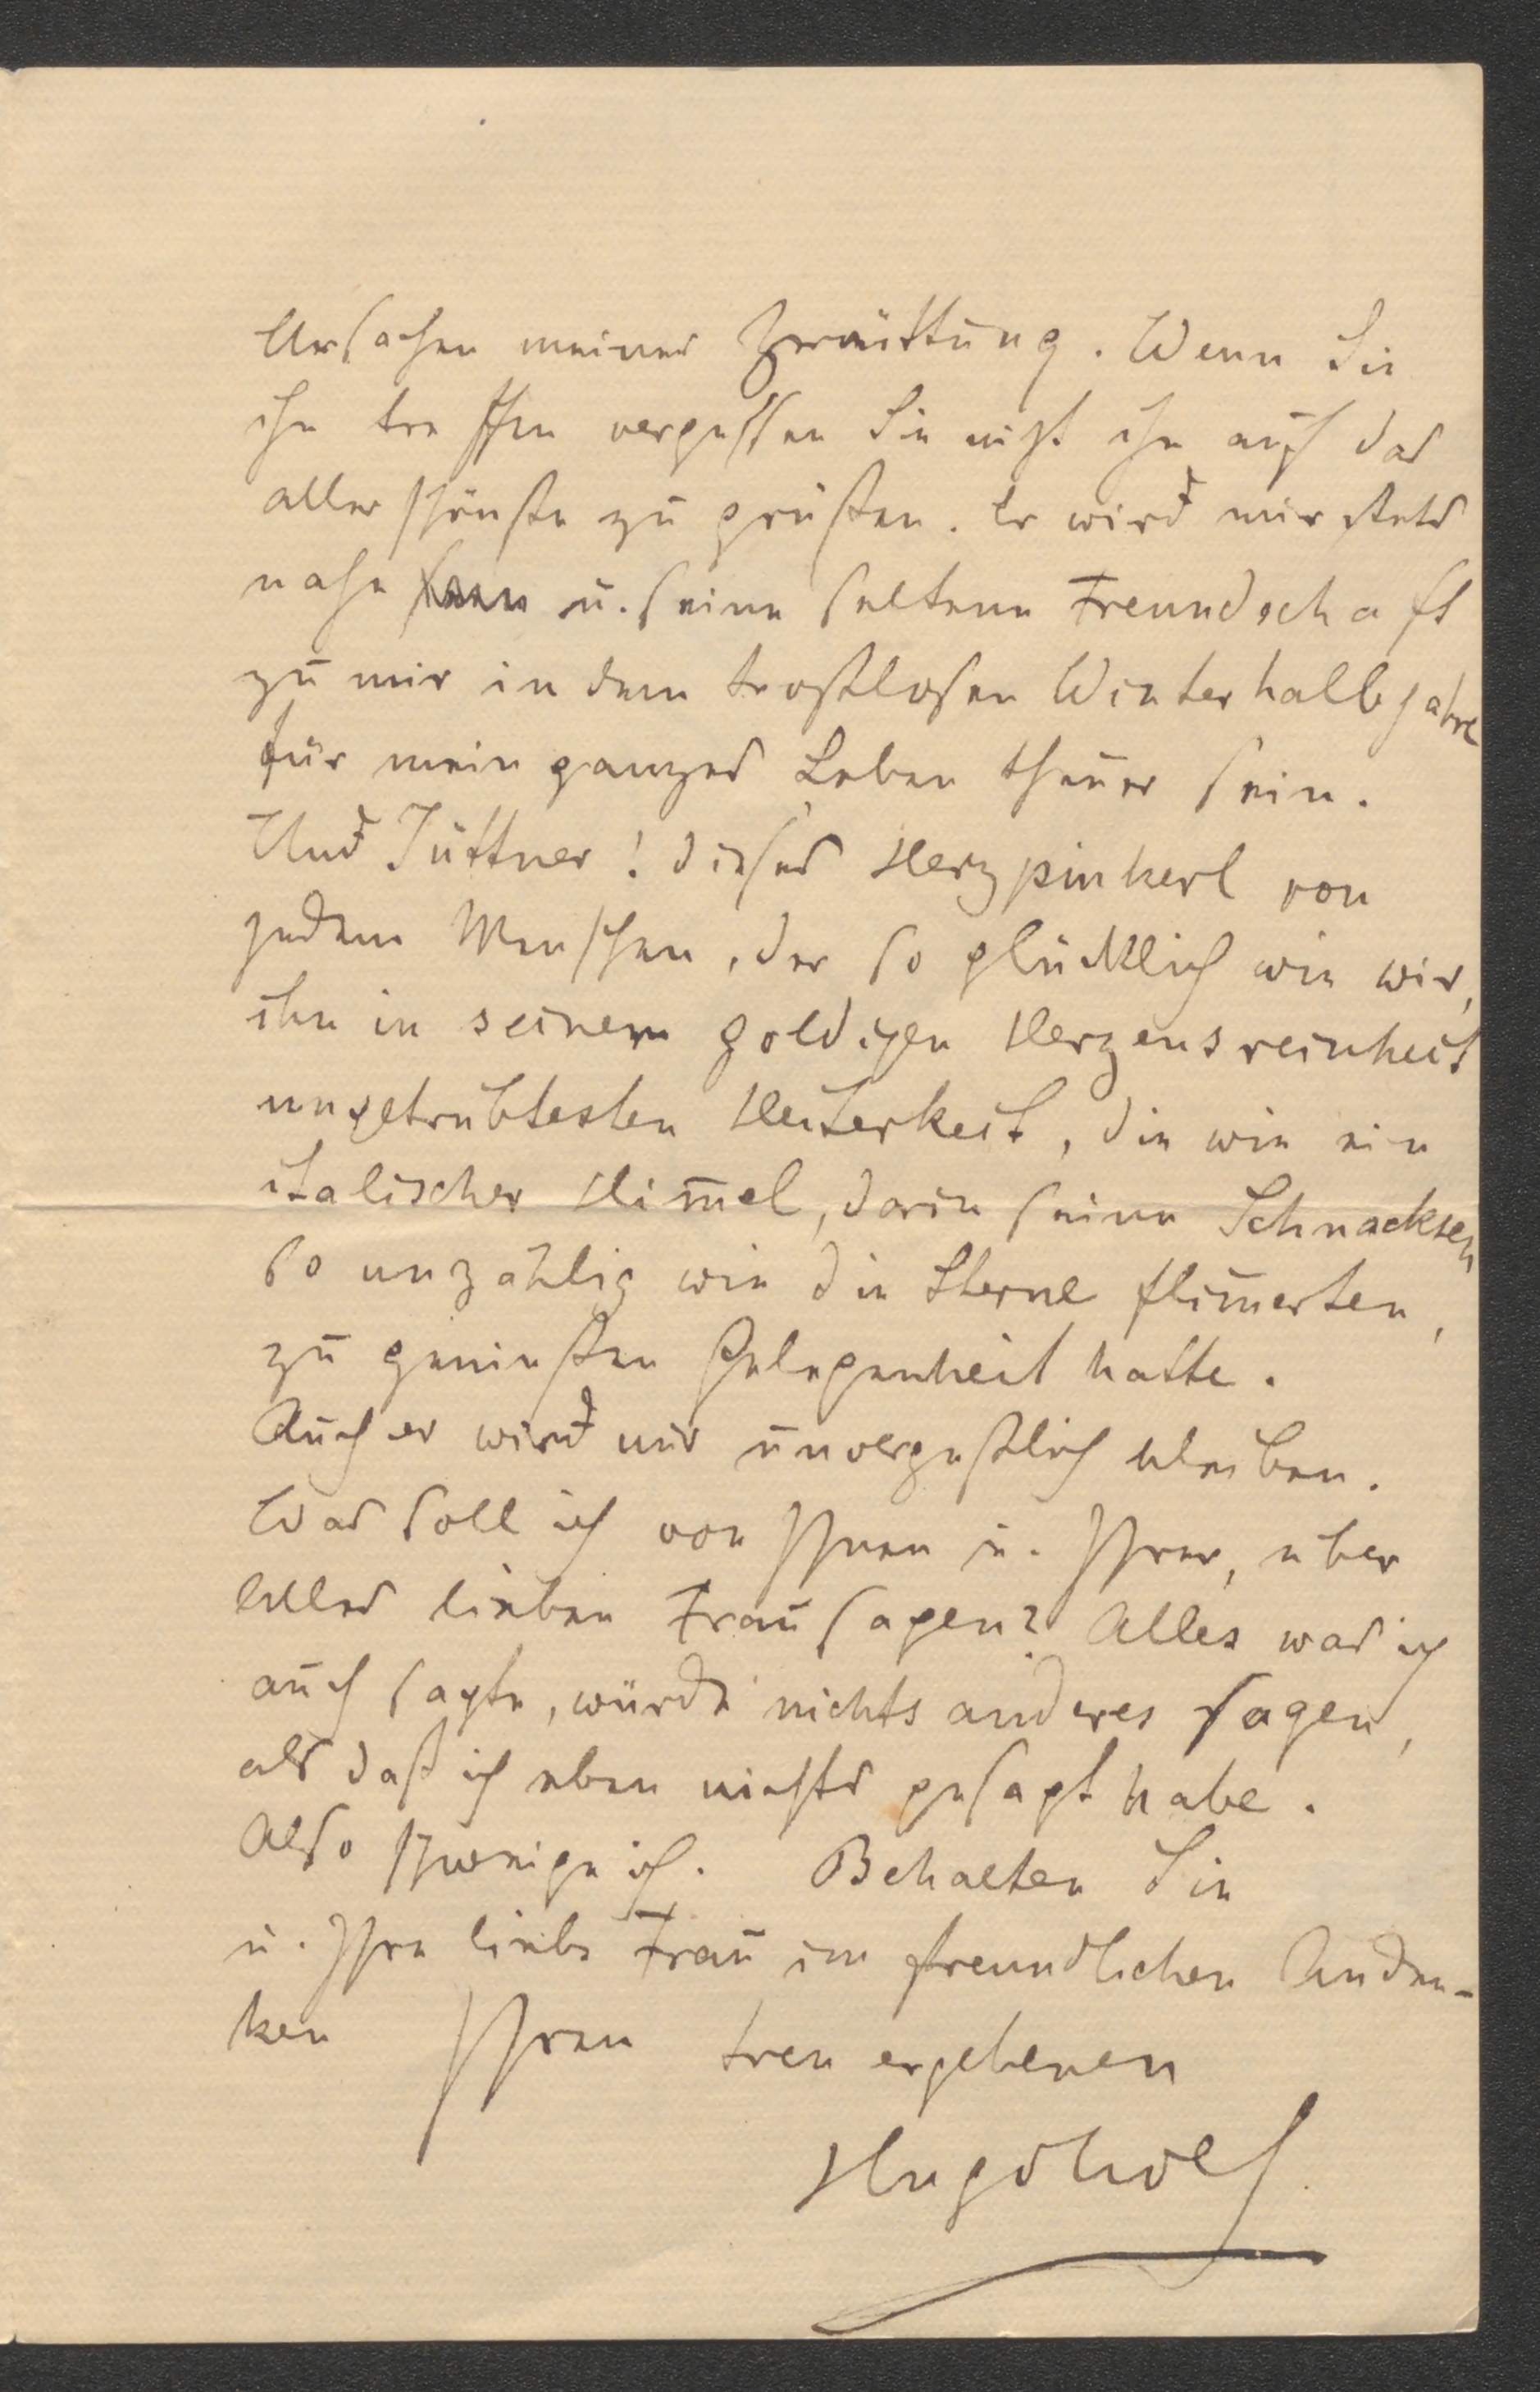 Ursachen meiner Zerrüttung. Wenn Sie
ihn treffen vergessen Sie nicht ihn auf das
allerschönste zu grüßen. Er wird mir stets
nahe u. seine seltene Freundschaft
zu mir in dem trostlosen Winterhalbjahre
für mein ganzes Leben theuer sein.
Und Jüttner! dieses Herzpinkerl von
jedem Menschen, der so glücklich wie wir,
ihn in seinem goldigen Herzensreinheit
ungetrübtesten Heiterkeit, die wie ein
italischer Him̄el, darin seine Schnacksen
so unzählig wie die Sterne flim̄erten,
zu genießen Gelegenheit hatte.
Auch er wird mir unvergeßlich bleiben.
Was soll ich von Ihnen u. Ihrer, über
Alles lieben Frau sagen? Alles was ich
auch sagte, würde nichts anderes sagen,
als daß ich eben nichts gesagt habe.
Also schweige ich. Behalten Sie
u. Ihre liebe Frau im freundlichen Anden-
ken Ihren treu ergebenen
Hugo Wolf